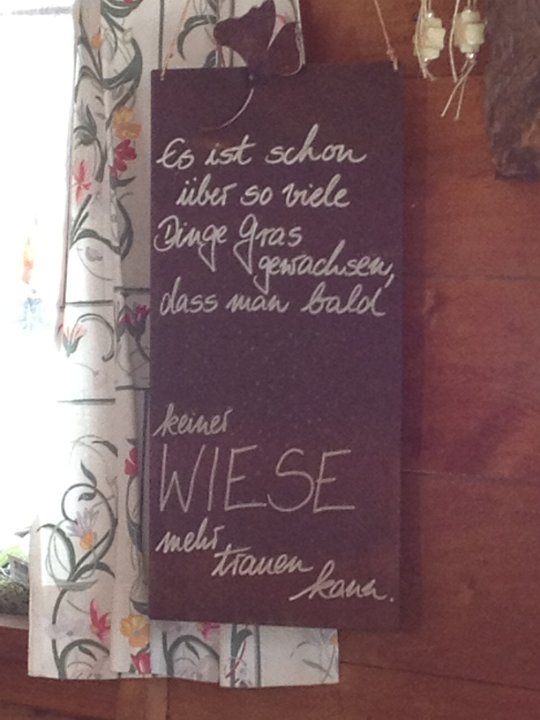 Es ist schon
über so viele
Dinge Gras
gewachsen,
dass man bald
keiner
WIESE
mehr
trauen
kann.